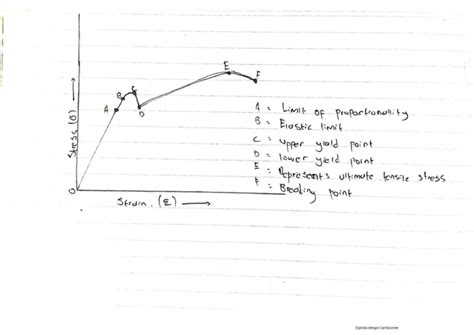 E
F
B
C
A
D
Stress (σ)
O
Strain. (Σ)
A = Limit of proportionality
B = Elastic limit
C = upper yield point
D = lower yield point
E = Represents ultimate tensile stress
F = Breaking point
Dipindai dengan CamScanner